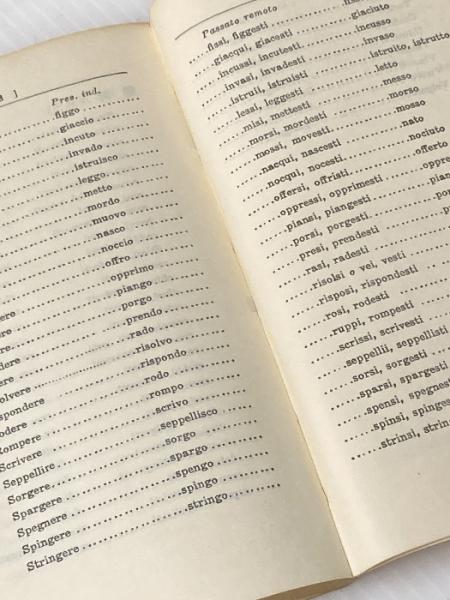 Pres. ind.
figgo
giaccio
incuto
invado
istruisco
leggo
metto
mordo
muovo
nasco
noccio
offro
opprimo
piango
porgo
prendo
rado
risolvo
rispondo
rodo
rompo
Scrivere scrivo
Seppellire seppellisco
Sorgere sorgo
Spargere spargo
Spegnere spengo
Spingere spingo
Stringere stringo
Passato remoto
fissi, figgesti
giacqui, giacesti giaciuto
incussi, incutesti incusso
invasi, invadesti invaso
istruii, istruisti istruito, istrutto
lessi, leggesti letto
misi, mettesti messo
morsi, mordesti morso
mossi, movesti mosso
nacqui, nascesti nato
nocqui, nocesti nociuto
offersi, offristi offerto
oppressi, opprimesti
piansi, piangesti
porsi, porgesti
presi, prendesti
rasi, radesti
risolsi o vei, vesti
risposi, rispondesti
rosi, rodesti
ruppi, rompesti
scrissi, scrivesti
seppellii, seppellisti
sorsi, sorgesti
sparsi, spargesti
spensi, spegnest
spinsi, spinges
strinsi, strin